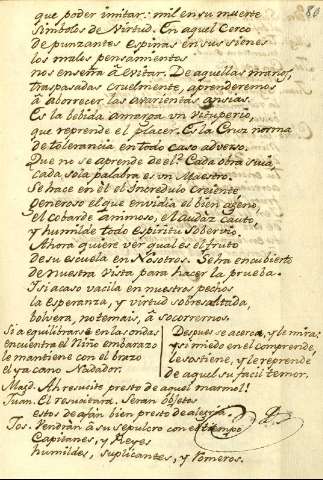 80
que poder imitar: mil en su muerte
Simbolos de Virtud. En aquel Cerco
de punzantes espinas en sus sienes
los malos pensamientos
nos enseña â evitar. De aquellas manos,
traspasadas cruelmente, aprenderemos
â aborrecer las avarientas ansias.
Es la bebida amarga un vituperio,
que reprende el placer. Es la Cruz norma
de tolerancia en todo caso adverso.
Que no se aprende de el? Cada obra suia,
cada sola palabra es un Maestro.
Se hace en êl el Incredulo creiente
generoso el que envidia el bien ageno,
el cobarde animoso, el Audàz cauto,
y humilde todo Espiritu sobervio.
Ahora quiere ver qual es el fruto
de su escuela en Nosotros. Se ha encubierto
de nuestra vista, para hacer la prueba.
I si acaso vacila en nuestros pechos
la Esperanza, y virtud sobresaltada,
bolverà, no temais, â socorrernos.
Si a equilibrarse en las ondas
encuentra el Niño embarazo
le mantiene con el brazo
el ya cano Nadador.
Despues se acerca, y le mira:
y si miedo en el comprende,
le sostiene, y le reprende
de aquel su facil temor.
Magd. Ah resucite presto de aquel marmol!
Juan. El resucitarà. Seran objetos
estos de afàn bien presto de alegria.
Jos. Vendràn â su sepulcro con el tiempo
Capitanes, y Reyes
humildes, suplicantes, y